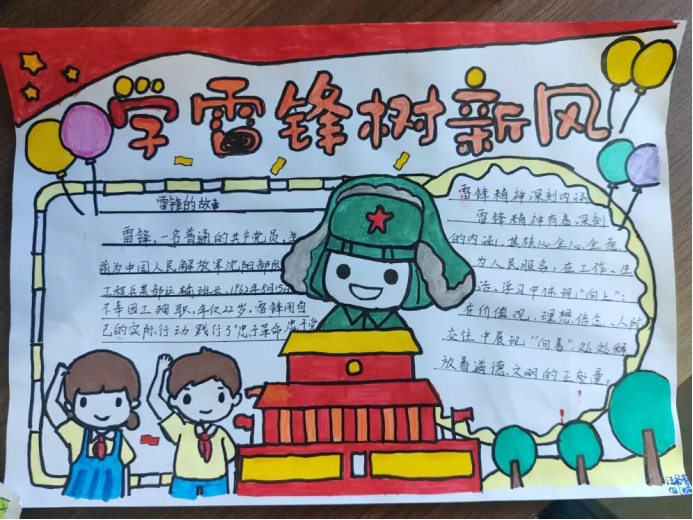 学雷锋树新风
雷锋的故事
雷锋，一名普通的共产党员，生
前为中国人民解放军沈阳部队
工程兵某部运输班长，1962年8月15日
不幸因工殉职，年仅22岁，雷锋用自
己的实际行动践行了"忠于革命忠于党
雷锋精神深刻内涵
雷锋精神有着深刻
的内涵，其核心全心全意
为人民服务，在工作、生
活、学习中体现"向上"；
在价值观、理想信念、人际
交往中展现"向善"处处释
放着道德、文明的正能量。